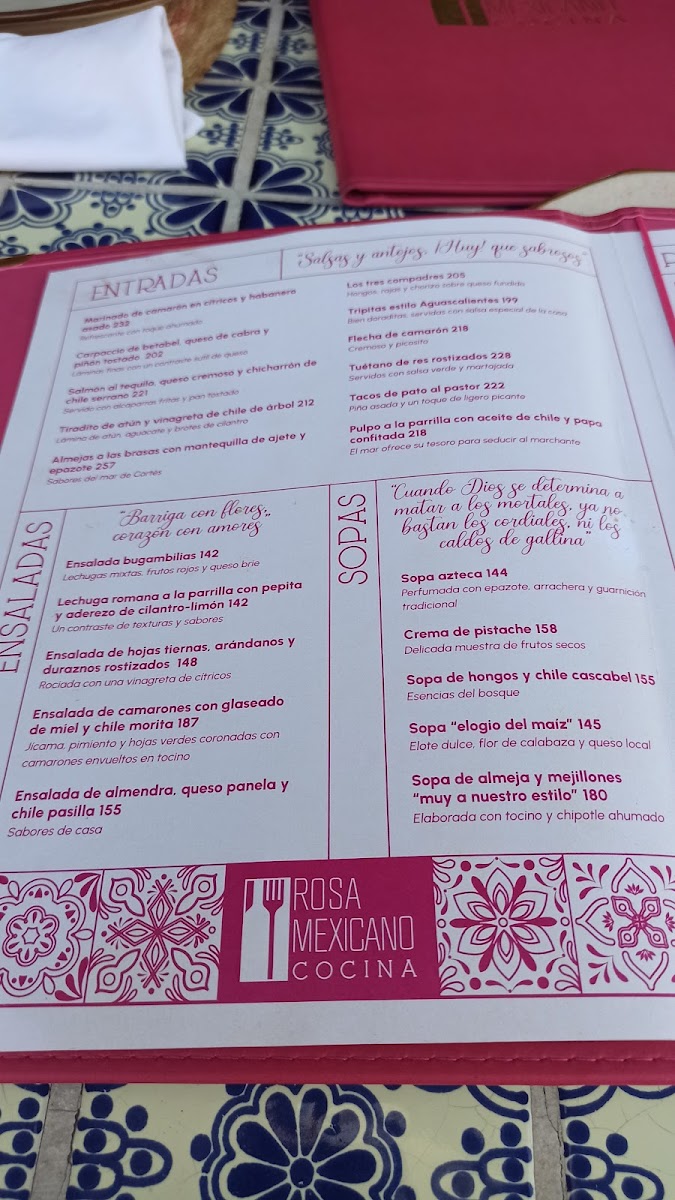 MEXICANO
COCINA
ENTRADAS
"Salsas y antojos, ¡Huy! que sabrosos"
Marinado de camarón en cítricos y habanero
asado 232
Refrescante con toque ahumado
Carpaccio de betabel, queso de cabra y
piñón tostado. 202
Láminas finas con un contraste sutil de queso
Salmón al tequila, queso cremoso y chicharrón de
chile serrano 221
Servido con alcaparras fritas y pan tostado
Tiradito de atún y vinagreta de chile de árbol 212
Lámina de atún, aguacate y brotes de cilantro
Almejas a las brasas con mantequilla de ajete y
epazote 257
Sabores del mar de Cortés
Los tres compadres 205
Hongos, rajas y chorizo sobre queso fundido
Tripitas estilo Aguascalientes 199
Bien doraditas, servidas con salsa especial de la casa
Flecha de camarón 218
Cremoso y picosito
Tuétano de res rostizados 228
Servidos con salsa verde y martajada
Tacos de pato al pastor 222
Piña asada y un toque de ligero picante
Pulpo a la parrilla con aceite de chile y papa
confitada 218
El mar ofrece su tesoro para seducir al marchante
ENSALADAS
"Barriga con flores,
corazón con amores
Ensalada bugambilias 142
Lechugas mixtas, frutos rojos y queso brie
Lechuga romana a la parrilla con pepita
y aderezo de cilantro-limón 142
Un contraste de texturas y sabores
Ensalada de hojas tiernas, arándanos y
duraznos rostizados 148
Rociada con una vinagreta de cítricos
Ensalada de camarones con glaseado
de miel y chile morita 187
Jícama, pimiento y hojas verdes coronadas con
camarones envueltos en tocino
Ensalada de almendra, queso panela y
chile pasilla 155
Sabores de casa
SOPAS
"Cuando Dios se determina a
matar a los mortales, ya no
bastan los cordiales, ni los
caldos de gallina"
Sopa azteca 144
Perfumada con epazote, arrachera y guarnición
tradicional
Crema de pistache 158
Delicada muestra de frutos secos
Sopa de hongos y chile cascabel 155
Esencias del bosque
Sopa "elogio del maíz" 145
Elote dulce, flor de calabaza y queso local
Sopa de almeja y mejillones
"muy a nuestro estilo" 180
Elaborada con tocino y chipotle ahumado
ROSA
MEXICANO
COCINA